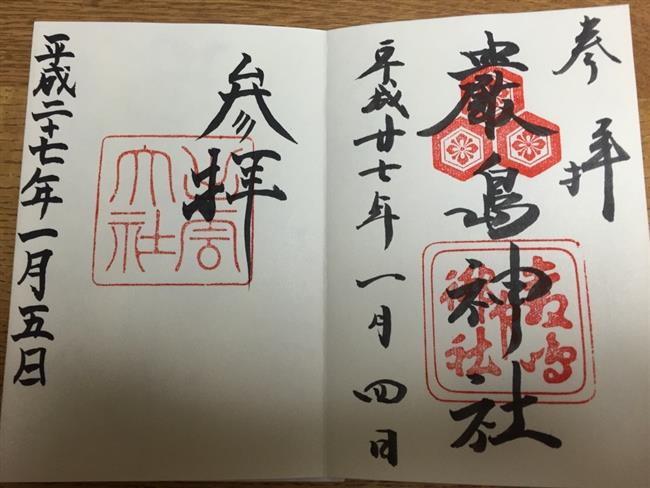 奉拝
嚴島神社
嚴島神社
平成廿七年一月四日
参拝
出雲大社
平成二十七年一月五日